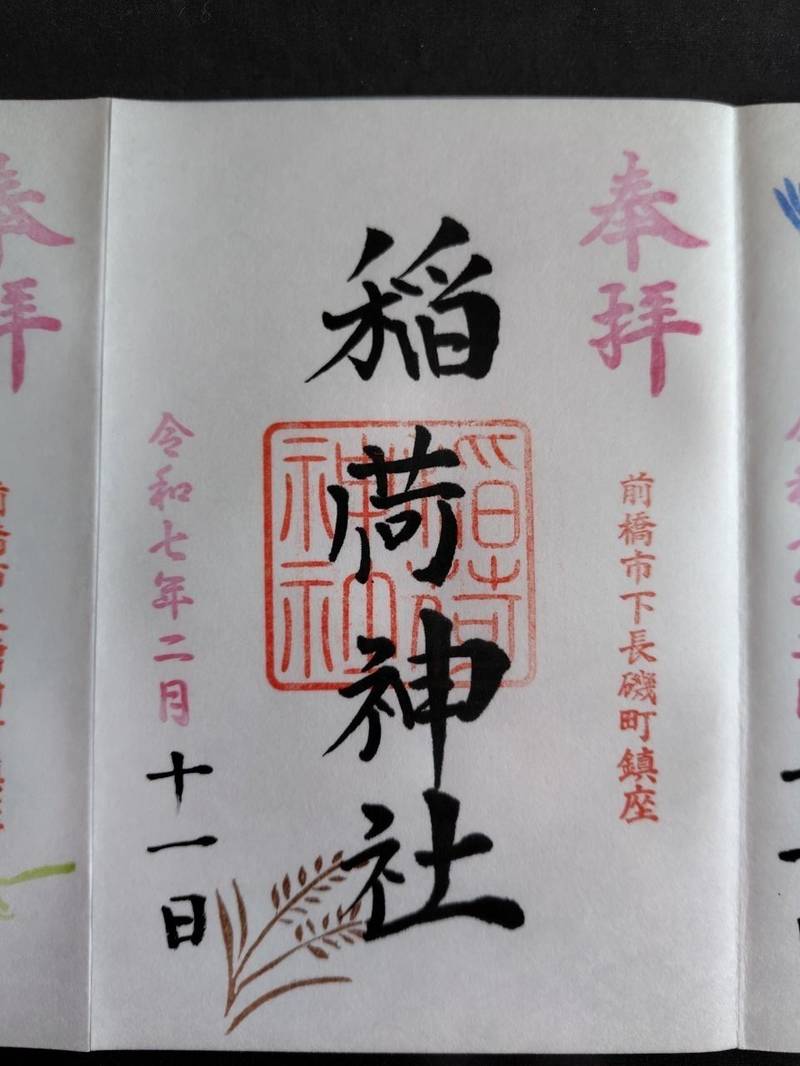 奉拝
前橋市下長磯町鎮座
稲荷神社
稲荷神社
令和七年二月十一日
奉拝